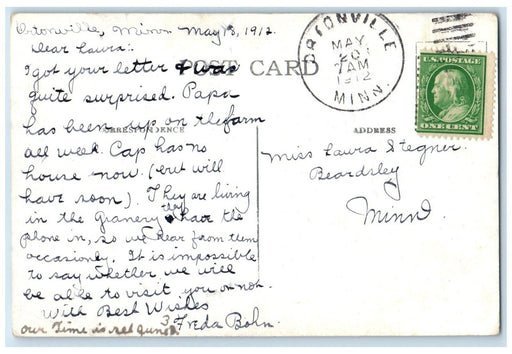 Ortonville, Minn May 18, 1912.
Dear Laura:
I got your letter & was
quite surprised. Papa
has been up on the farm
all week. Cap has no
house now. (but will
have soon). They are living
in the Granery they have the
phone in, so we hear from them
occasionly. It is impossible
to say whether we will
be able to visit you or not.
With Best Wishes
Freda Bohn.
our Time is set June 3.
POST CARD
CORRESPONDENCE
ADDRESS
ORTONVILLE
MAY
20
7AM
1912
MINN.
U.S. POSTAGE
ONE CENT
Miss Laura Stegner
Beardsley
Minn.